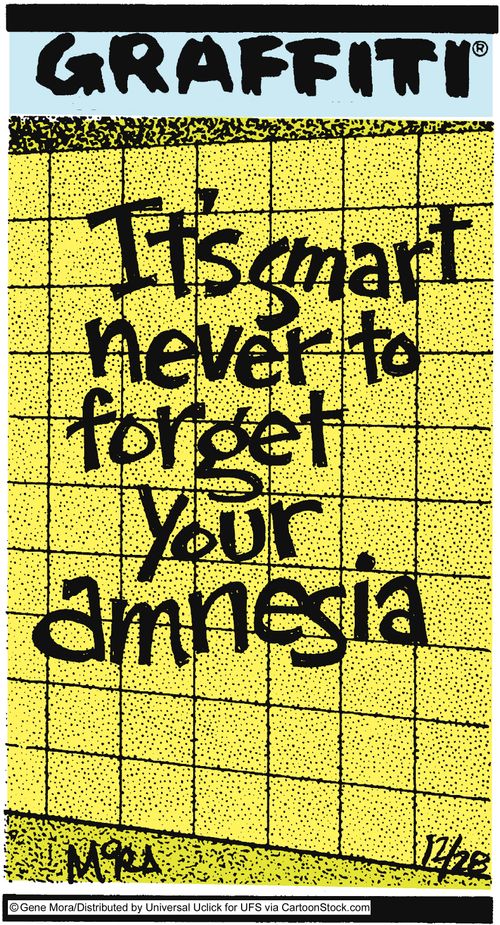 GRAFFITI®
It's smart
never to
forget
your
amnesia
MORA
12/28
©Gene Mora/Distributed by Universal Uclick for UFS via CartoonStock.com